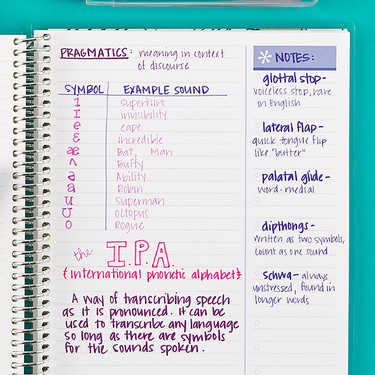 PRAGMATICS: meaning in context
of discourse
SYMBOL EXAMPLE SOUND
superhero
I invisibility
e cape
ɛ incredible
æ Bat, Man
ʌ Buffy
Ability
a Robin
u superman
ʊ octopus
o Rogue
the I.P.A.
{international phonetic alphabet}
A way of transcribing speech
as it is pronounced. it can be
used to transcribe any language
so long as there are symbols
for the sounds spoken.
* NOTES:
glottal stop-
voiceless stop, rare
in English
lateral flap-
quick tongue flip
like "butter"
palatal glide-
word-medial
dipthongs-
written as two symbols,
count as one sound
schwa- always
unstressed, found in
longer words